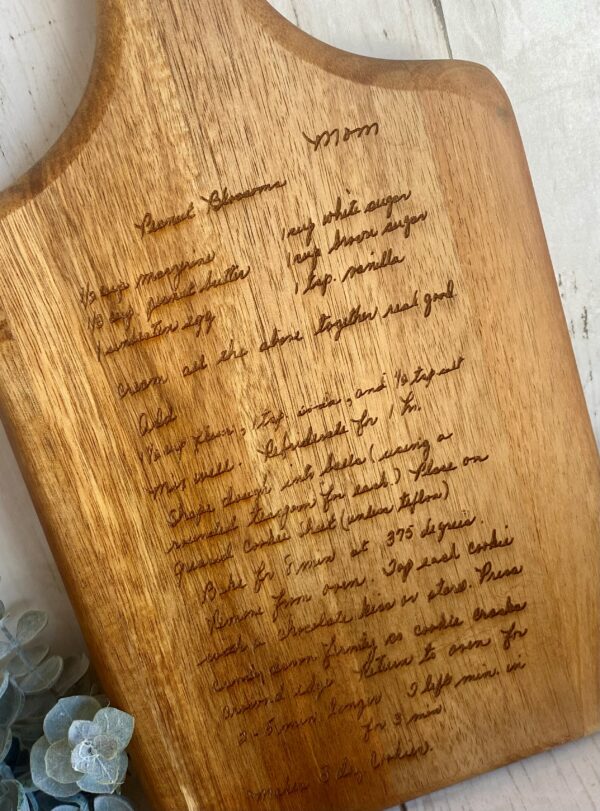 Mom
Peanut Blossoms
½ cup margarine 1 cup white sugar
½ cup peanut butter 1 cup brown sugar
1 unbeaten egg 1 tsp. vanilla
Cream all the above together real good
Add
1½ cup flour, 1 tsp. soda, and ½ tsp salt
Mix well. Refrigerate for 1 hr.
Shape dough into balls (using a
rounded teaspoon for each.) Place on
greased cookie sheet (unless teflon)
Bake for min at 375 degrees.
Remove from oven. Top each cookie
with a chocolate kiss or stars. Press
candy down firmly so cookie cracks
around edge. Return to oven for
2-5 min. longer. I left mine in
for 3 min
Makes 3 doz